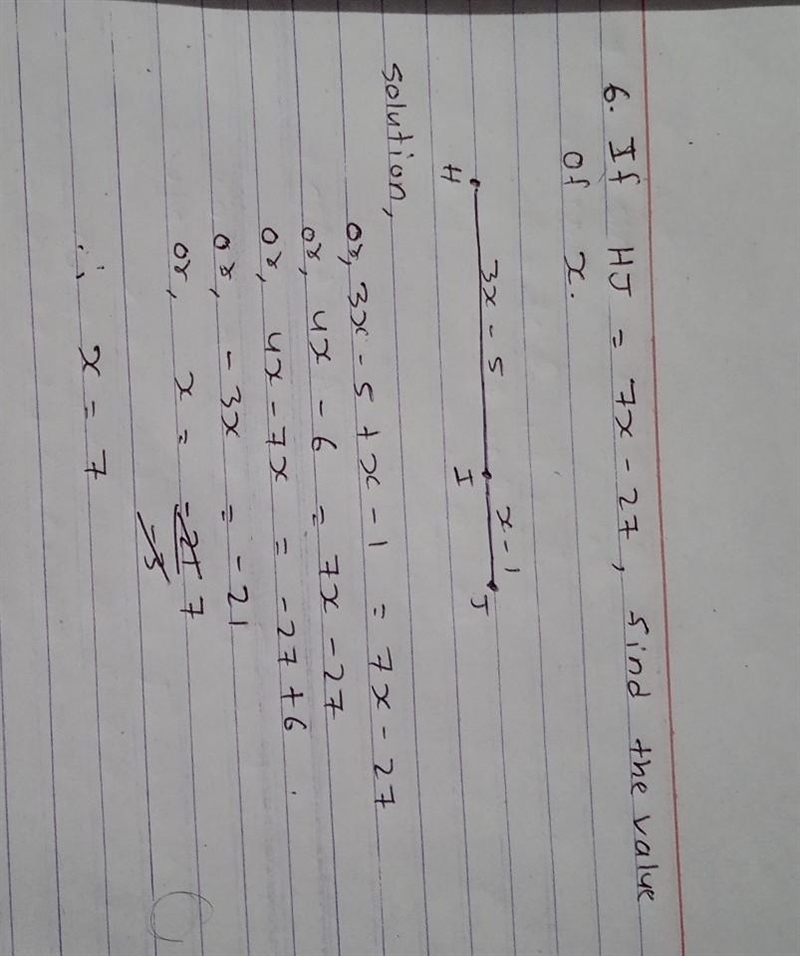 6. If HJ = 7x - 27, find the value
of x.
3x - 5 x - 1
H I J
Solution,
or, 3x - 5 + x - 1 = 7x - 27
or, 4x - 6 = 7x - 27
or, 4x - 7x = -27 + 6
or, -3x = -21
or, x = -21 7
-3
∴ x = 7